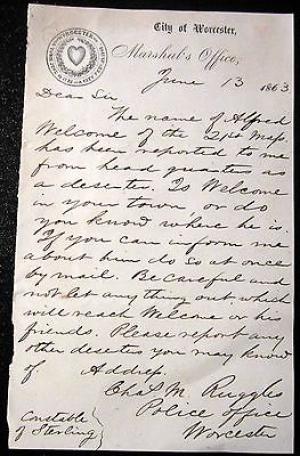 City of Worcester,
Marshal's Office,
June 13 1863
Dear Sir
The name of Alfred
Welcome of the 21st Mass
has been reported to me
from head quarters as
a deserter. Is Welcome
in your town, or do
you know where he is.
If you can inform me
about him do so at once
by mail. Be careful and
not let any thing out, which
will reach Welcome or his
friends. Please report any
other deserters you may know
of Address.
Chas. M. Ruggles
Police office
Worcester
Constable
of Sterling